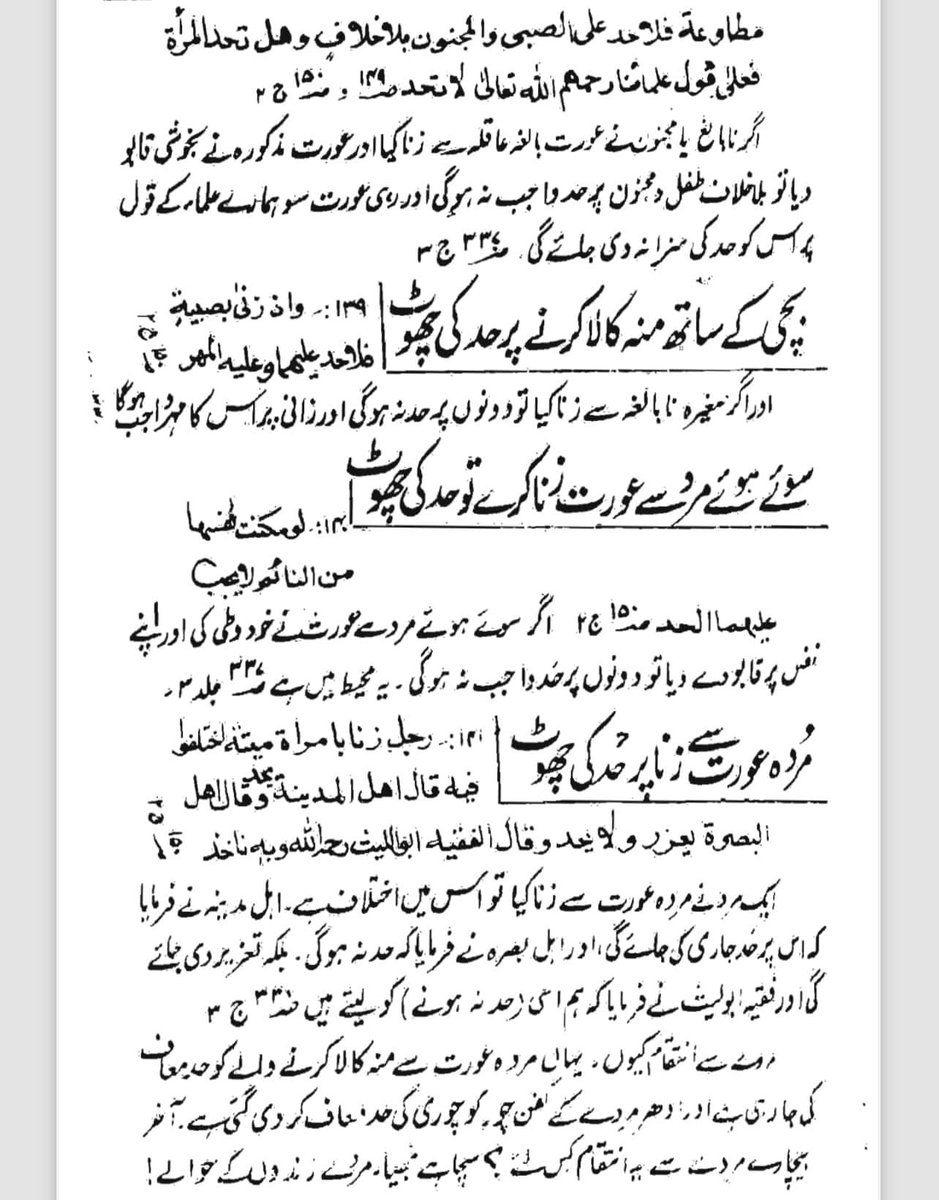 مطاوعة فلا حد على الصبى والمجنون بلا خلاف وهل تحد المرأة
فعلى قول علمائنا رحمهم الله تعالىٰ لا تحد صـ۱۴۹ و صـ۱۵۰ ج ۲
اگر نابالغ یا مجنون نے عورت بالغہ عاقلہ سے زنا کیا اور عورت مذکورہ نے بخوشی قابو
دیا تو بلا خلاف طفل و مجنون پر حد واجب نہ ہوگی اور رہی عورت سو ہمارے علماء کے قول
پر اس کو حد کی سزا نہ دی جائے گی۔ صـ۳۳۷ ج ۳
بچی کے ساتھ منہ کالا کرنے پر حد کی چھوٹ
۱۳۹:۔ وان زنیٰ بصبیة
فلا حد علیهما و علیه المهر
اور اگر صغیرہ نابالغہ سے زنا کیا تو دونوں پر حد نہ ہوگی اور زانی پر اس کا مہر واجب ہوگا
سوئے ہوئے مرد سے عورت زنا کرے تو حد کی چھوٹ
۱۴۰:۔ لو مکنت نفسها
من النائم لا یجب
علیهما الحد صـ۱۵۰ ج۲ اگر سوئے ہوئے مرد سے عورت نے خود وطی کی اور اپنے
نفس پر قابو دے دیا تو دونوں پر حد واجب نہ ہوگی۔ یہ محیط میں ہے صـ۳۳۷ جلد ۳۔
مُردہ عورت سے زنا پر حد کی چھوٹ
۱۴۱:۔ رجل زنا بامراة میتة اختلفوا
فیه قال اهل المدینة یحد وقال اهل
البصرة یعزر ولا یحد وقال الفقیه ابواللیث رحمہ اللہ وبه ناخذ
ایک مرد نے مردہ عورت سے زنا کیا تو اس میں اختلاف ہے۔ اہل مدینہ نے فرمایا
کہ اس پر حد جاری کی جائے گی، اور اہل بصرہ نے فرمایا کہ حد نہ ہوگی۔ بلکہ تعزیر دی جائے
گی اور فقیہ ابولیث نے فرمایا کہ ہم اسی (حد نہ ہونے) کو لیتے ہیں ج ۳
مردے سے انتقام کیوں۔ یہاں مردہ عورت سے منہ کالا کرنے والے کو حد معاف
کی جا رہی ہے اور ادھر مردے کے کفن چور کو چوری کی حد معاف کر دی گئی ہے۔ آخر
بیچارے مردے سے یہ انتقام کس لئے؟ سچا ہے مردے زندوں کے حوالے!